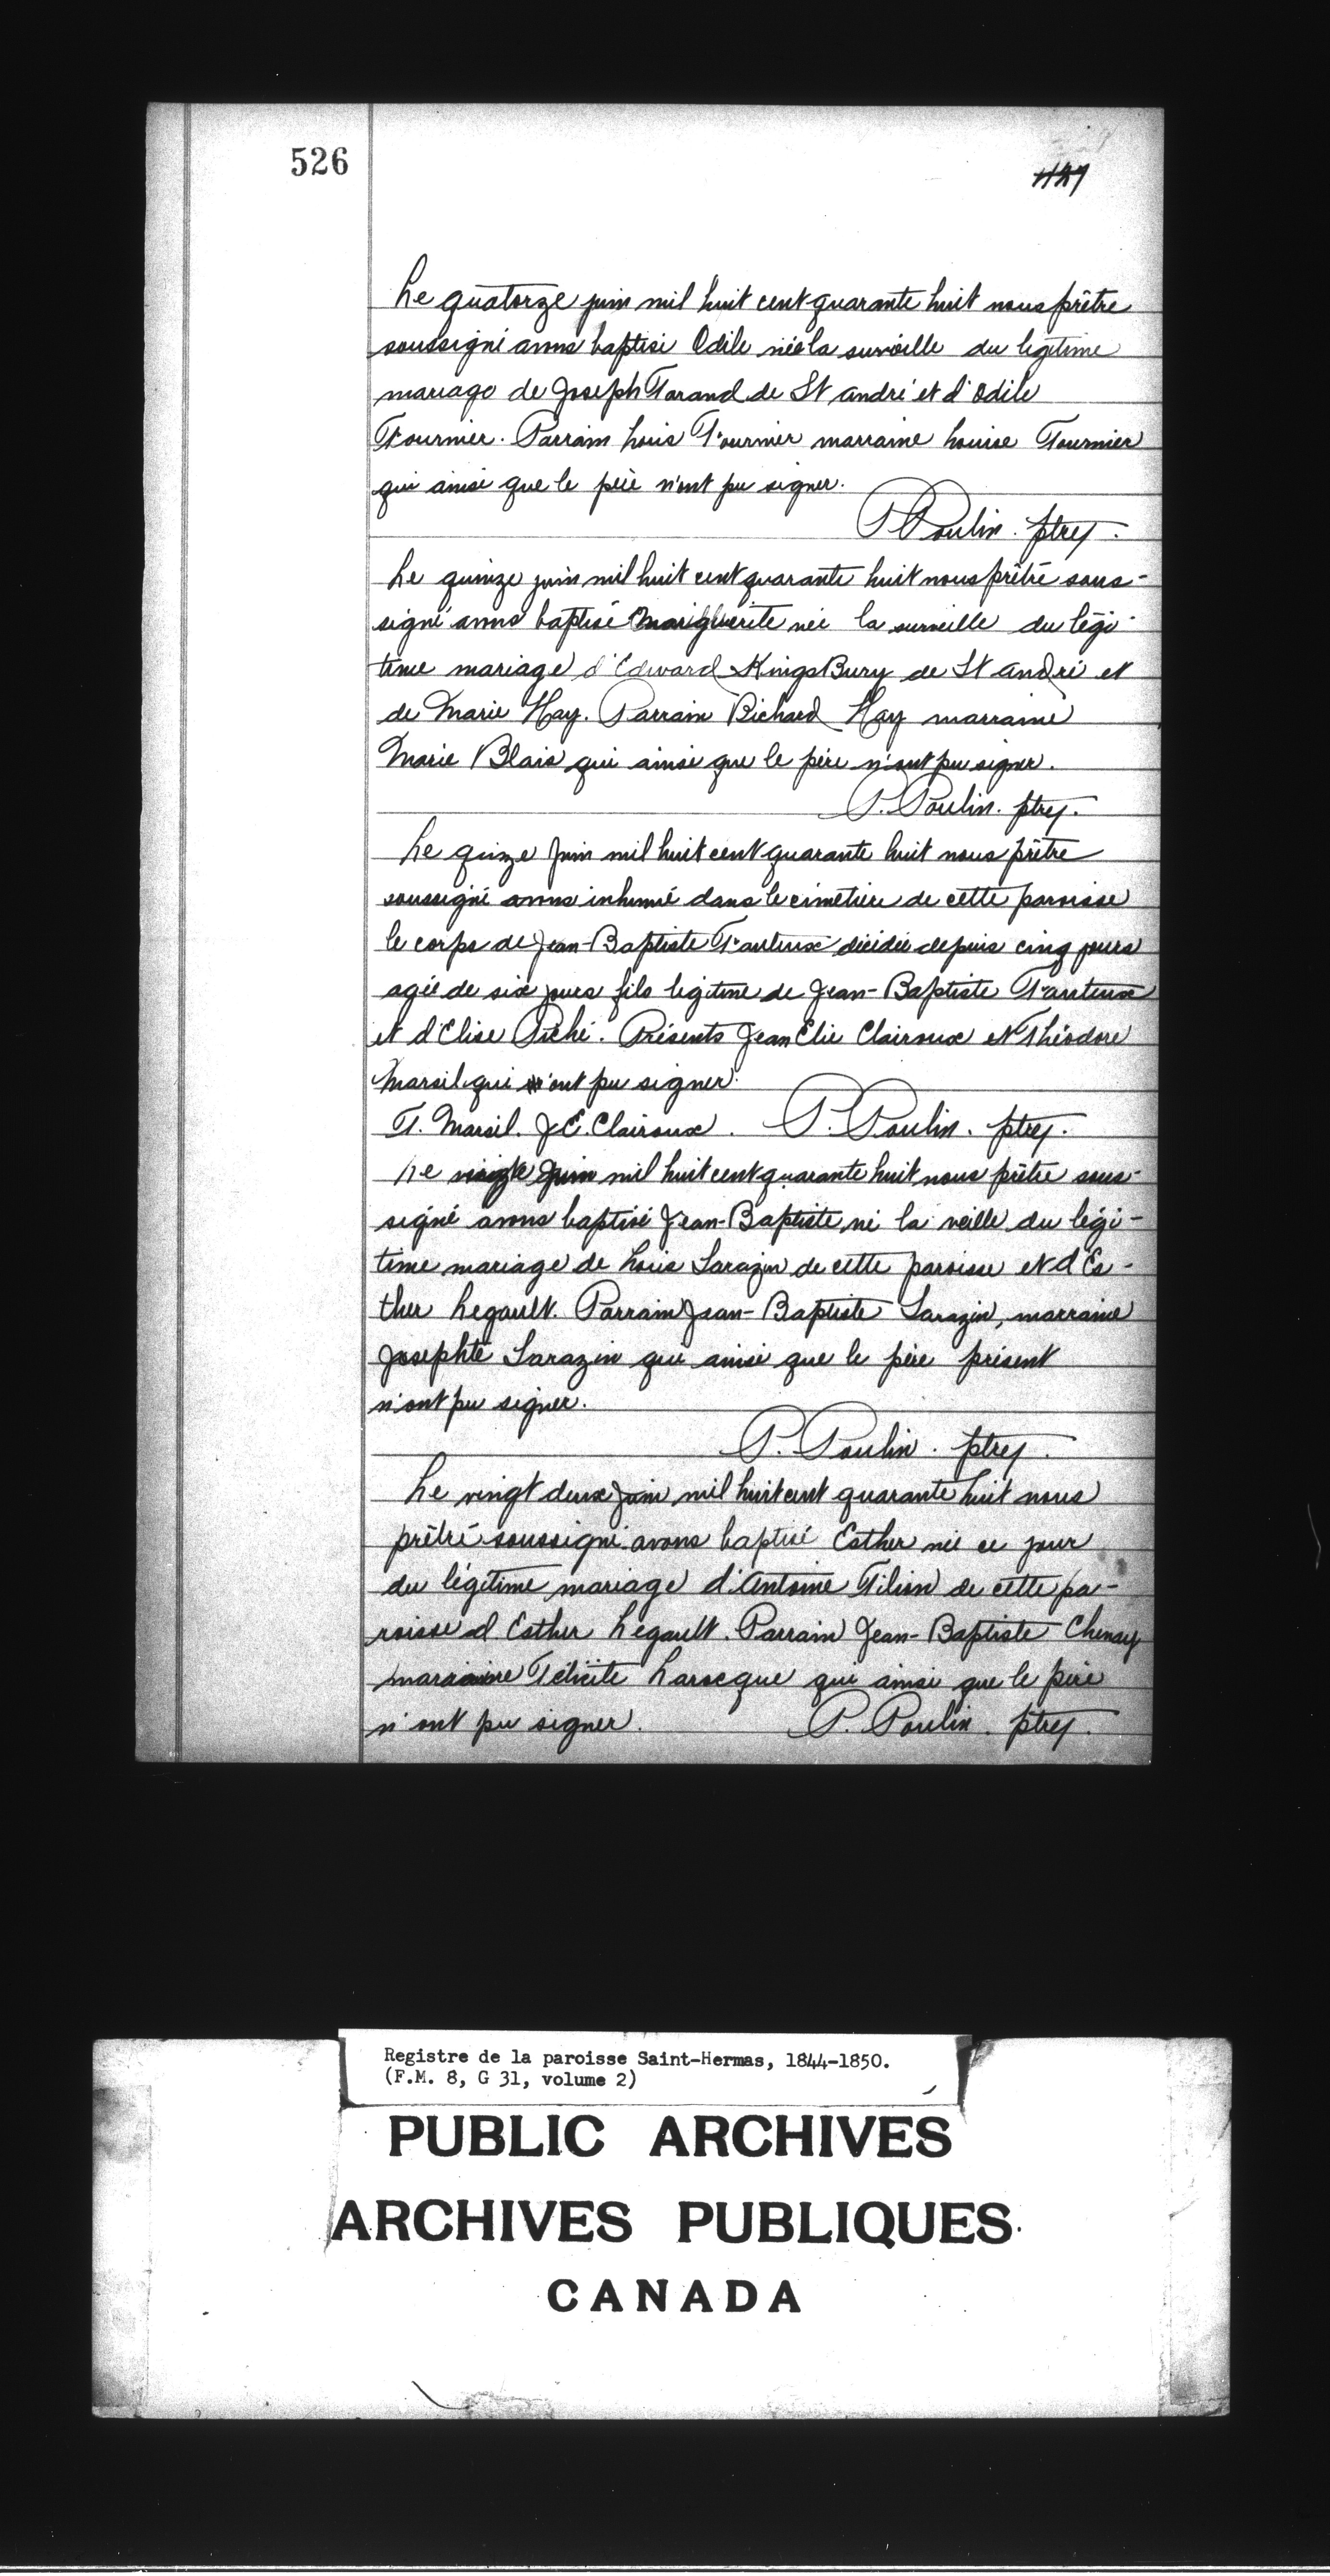 526
Le quatorze juin mil huit cent quarante huit nous prêtre
soussigné avons baptisé Odile née la surveille du légitime
mariage de Joseph Farand de St André et d'Odile
Fournier. Parrain Louis Fournier marraine Louise Fournier
qui ainsi que le père n'ont pu signer.
P Poulin. ptre.
Le quinze juin mil huit cent quarante huit nous prêtre sous-
signé avons baptisé Marguerite née la surveille du légi-
time mariage d'Edward KingsBury de St André et
de Marie Hay. Parrain Richard Hay marraine
Marie Blais qui ainsi que le père n'ont pu signer.
P. Poulin. ptre.
Le quize Juin mil huit cent quarante huit nous prêtre
soussigné avons inhumé dans le cimetière de cette paroisse
le corps de Jean-Baptiste Fauteux décidée depuis cinq jours
agée de six jours fils legitime de Jean-Baptiste Fauteux
et d'Elise Piché. Présents Jean Elie Clairoux et Théodore
Marsil qui n'ont pu signer.
T. Marsil. J.E. Clairoux. P. Poulin. ptre.
Le juin mil huit cent quarante huit nous prêtre sous-
signé avons baptisé Jean-Baptiste né la veille du légi-
time mariage de Louis Sarazin de cette paroisse et d'Es-
ther Legault. Parrain Jean-Baptiste Sarazin, marraine
Josephte Sarazin qui ainsi que le père présent
n'ont pu signer.
P. Poulin. ptre.
Le vingt deux Juin mil huit cent quarante huit nous
prêtré soussigné avons baptisé Esther née ce jour
du légitime mariage d'Antoine Filion de cette pa-
roisse d Esther Legault. Parrain Jean-Baptiste Chenay
marraine Félicité Larocque qui ainsi que le père
n'ont pu signer. P. Poulin. ptre.
Registre de la paroisse Saint-Hermas, 1844-1850.
(F.M. 8, G 31, volume 2)
PUBLIC ARCHIVES
ARCHIVES PUBLIQUES
CANADA